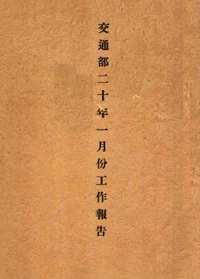 交通部二十年一月份工作報告